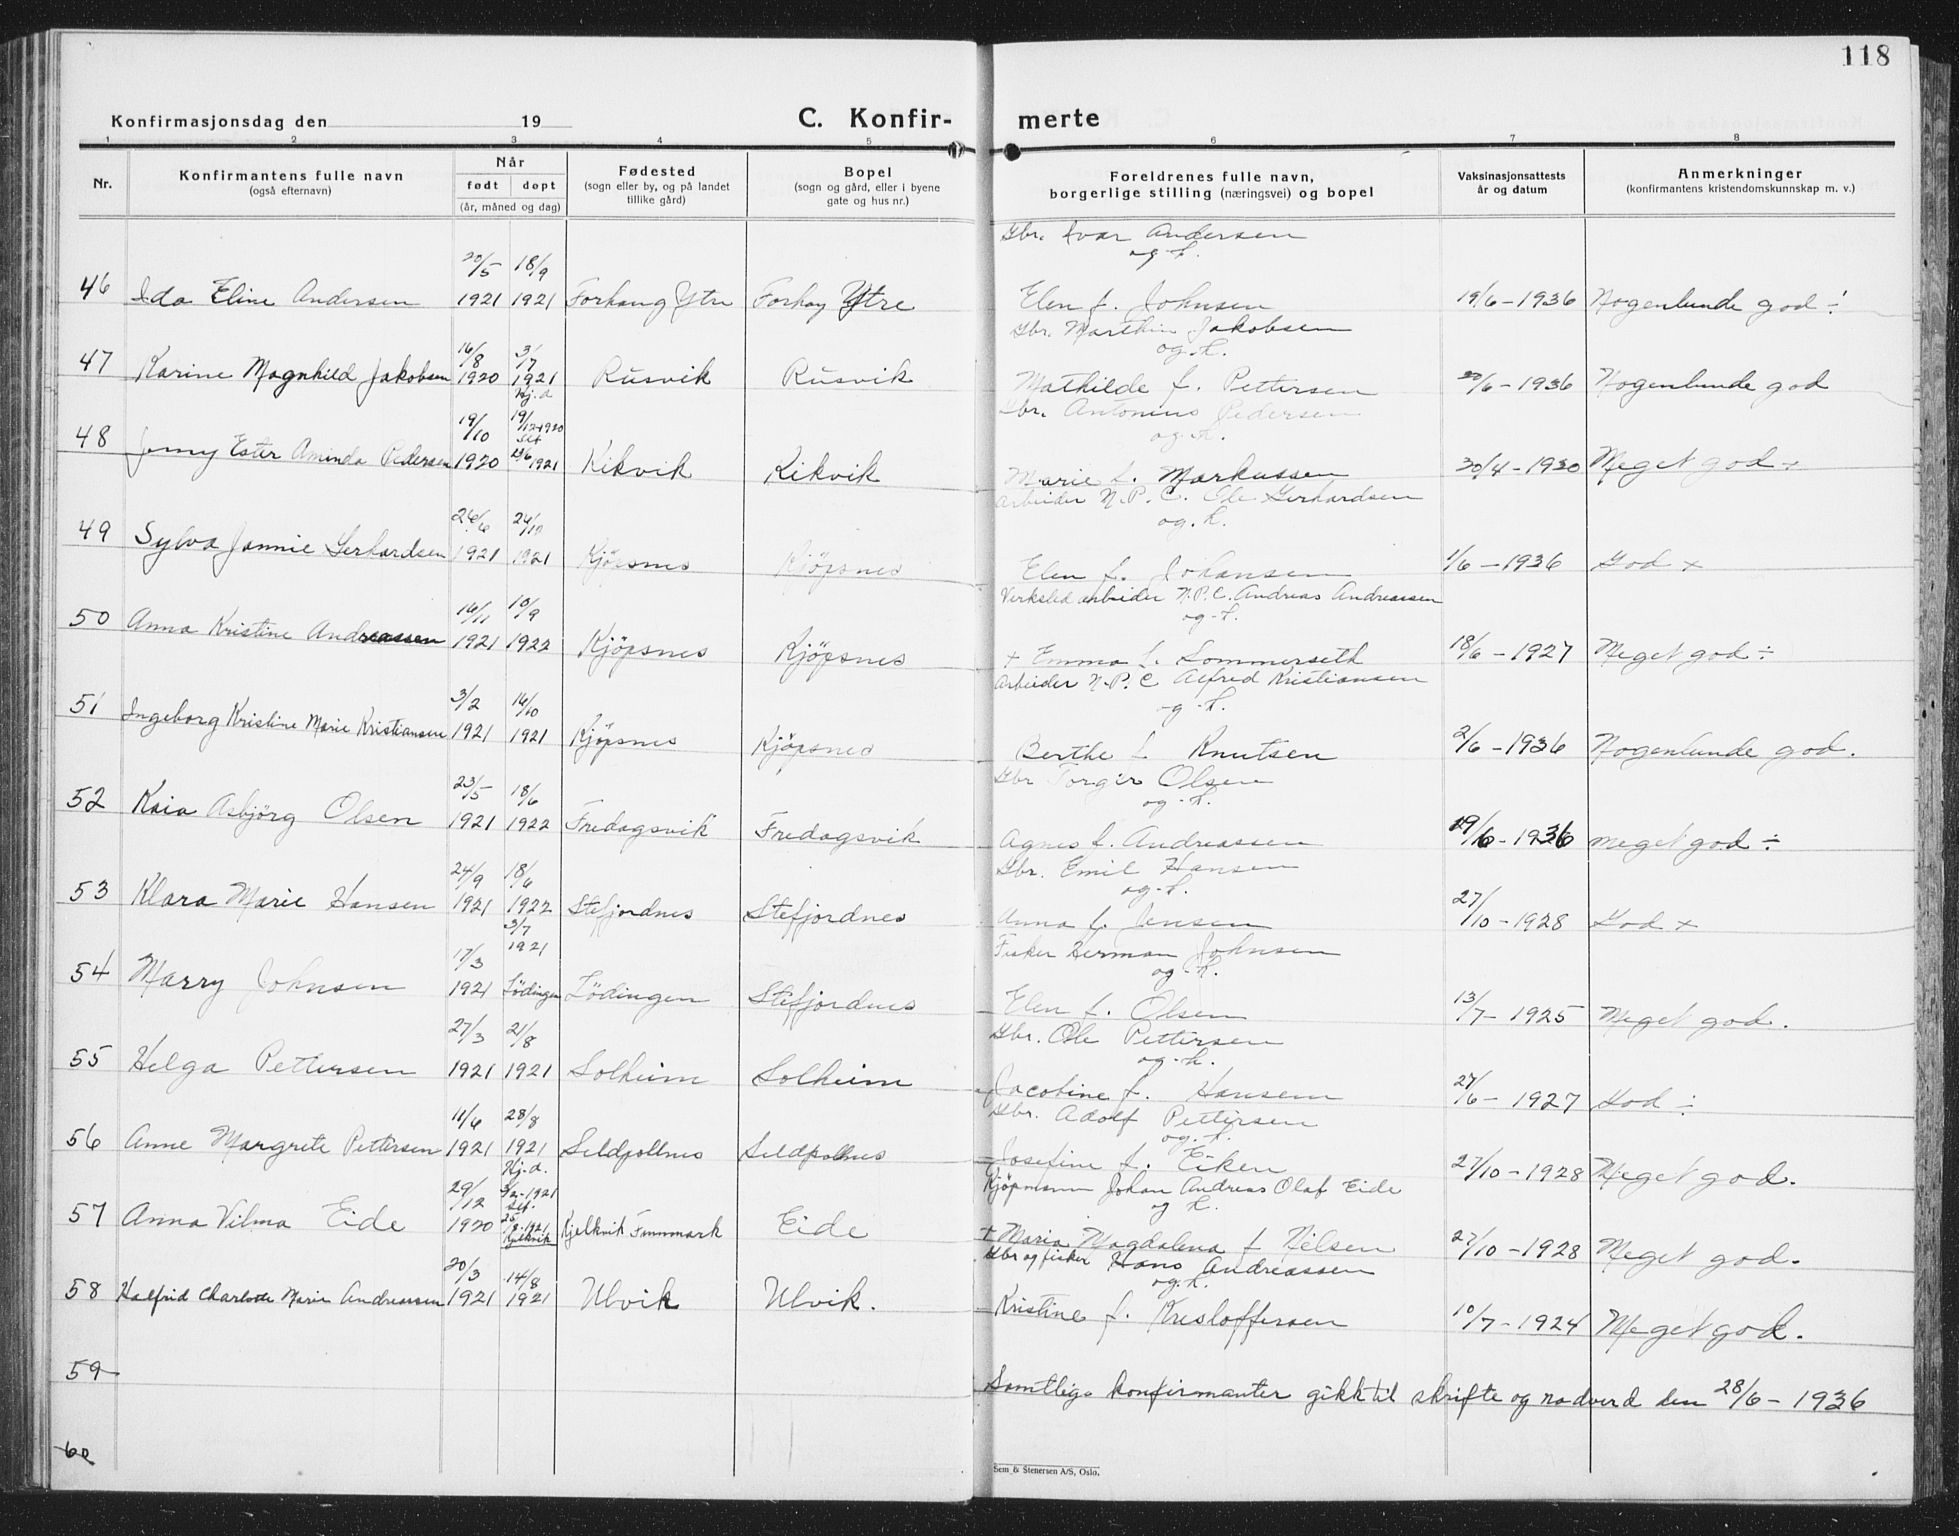 118
Konfirmasjonsdag den 19
C. Konfir- merte
1 2 3 4 5 6 7 8
Nr.
Konfirmantens fulle navn
(også efternavn)
Når
født døpt
(år, måned og dag)
Fødested
(sogn eller by, og på landet
tillike gård)
Bopel
(sogn og gård, eller i byene
gate og hus nr.)
Foreldrenes fulle navn,
borgerlige stilling (næringsvei) og bopel
Vaksinasjonsattests
år og datum
Anmerkninger
(konfirmantens kristendomskunnskap m. v.)
Gbr. Ivar Andersen
og h.
20/5 18/9
46 Ida Eline Andersen 1921 1921 Forhaug Ytre Forhaug Ytre Elen f. Johnsen 19/6-1936 Nogenlunde god ÷
Gbr. Marthin Jakobsen
og h.
16/8 3/7
47 Karine Magnhild Jakobsen 1920 1921 Rusvik Rusvik Mathilde f. Pettersen 20/6-1936 Nogenlunde god
Hj.d.
Gbr. Antonius Pedersen
og h.
19/10 19/12 1920
48 Jenny Ester Aminda Pedersen 1920 23/6 1921 Kikvik Kikvik Marie f. Markussen 30/4-1930 Meget god +
Arbeider N.P.C. Ole Gerhardsen
og h.
26/6 24/10
49 Sylva Jannie Gerhardsen 1921 1921 Kjöpsnes Kjöpsnes Elen f. Johansen 1/6-1936 God +
Verksted arbeider N.P.C. Andreas Andreassen
og h.
16/11 10/9
50 Anna Kristine Andreassen 1921 1922 Kjöpsnes Kjöpsnes + Emma f. Sommerseth 18/6-1927 Meget god ÷
Arbeider N.P.C. Alfred Kristiansen
og h.
3/2 16/10
51 Ingeborg Kristine Marie Kristiansen 1921 1921 Kjöpsnes Kjöpsnes Berthe f. Knutsen 2/6-1936 Nogenlunde god.
Gbr Torgeir Olsen
og h.
23/5 18/6
52 Kaia Asbjörg Olsen 1921 1922 Fredagsvik Fredagsvik Agnes f. Andreassen 19/6-1936 meget god ÷
Gbr. Emil Hansen
og h.
24/9 18/6
53 Klara Marie Hansen 1921 1922 Stefjordnes Stefjordnes Anna f. Jensen 27/10-1928 God +
Fisker Herman Johnsen
og h.
17/3 3/7 1921
54 Marry Johnsen 1921 Lödingen Lödingen Stefjordnes Elen f. Olsen 13/7-1925 Meget god.
Gbr. Ole Pettersen
og h.
27/3 21/8
55 Helga Pettersen 1921 1921 Solheim Solheim Jacobine f. Hansen 27/6-1927 God ÷
Gbr. Adolf Pettersen
og h.
11/6 28/8
56 Anne Margrete Pettersen 1921 1921 Seldpollnes Seldpollnes Josefine f. Eiken 27/10-1928 Meget god.
Hj.d.
Kjöpmann Johan Andreas Olaf Eide
og h.
29/12 3/2-1921
57 Anna Vilma Eide 1920 25/8-1921 Kjelkvik Kjelkvik Finnmark Eide + Maria Magdalena f Nilsen 27/10-1928 Meget god.
Gbr og fisker Hans Andreassen
og h.
20/3 14/8
58 Halfrid Charlotte Marie Andreassen 1921 1921 Ulvik Ulvik. Kristine f. Kristoffersen 10/7-1924 Meget god.
59
Samtlige konfirmanter gikk til skrifte og nadverd den 28/6-1936
60
Sem & Stenersen A/S, Oslo.